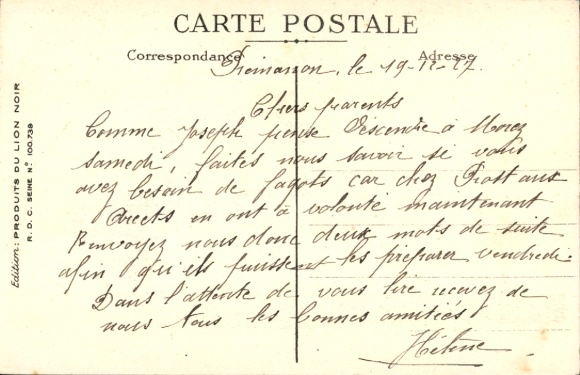 CARTE POSTALE
Correspondance
Adresse
Prémanon, le 19-12-27.
Chers parents
Comme Joseph pense descendre à Morez
samedi, faites nous savoir si vous
avez besoin de fagots car chez Prost aux
en ont à volonté maintenant
Renvoyez nous donc deux mots de suite
afin qu'ils puissent les préparer vendredi.
Dans l'attente de vous lire recevez de
nous tous les bonnes amitiés
Hélène
Edition: PRODUITS DU LION NOIR
R.D.C. SEINE No 100.738